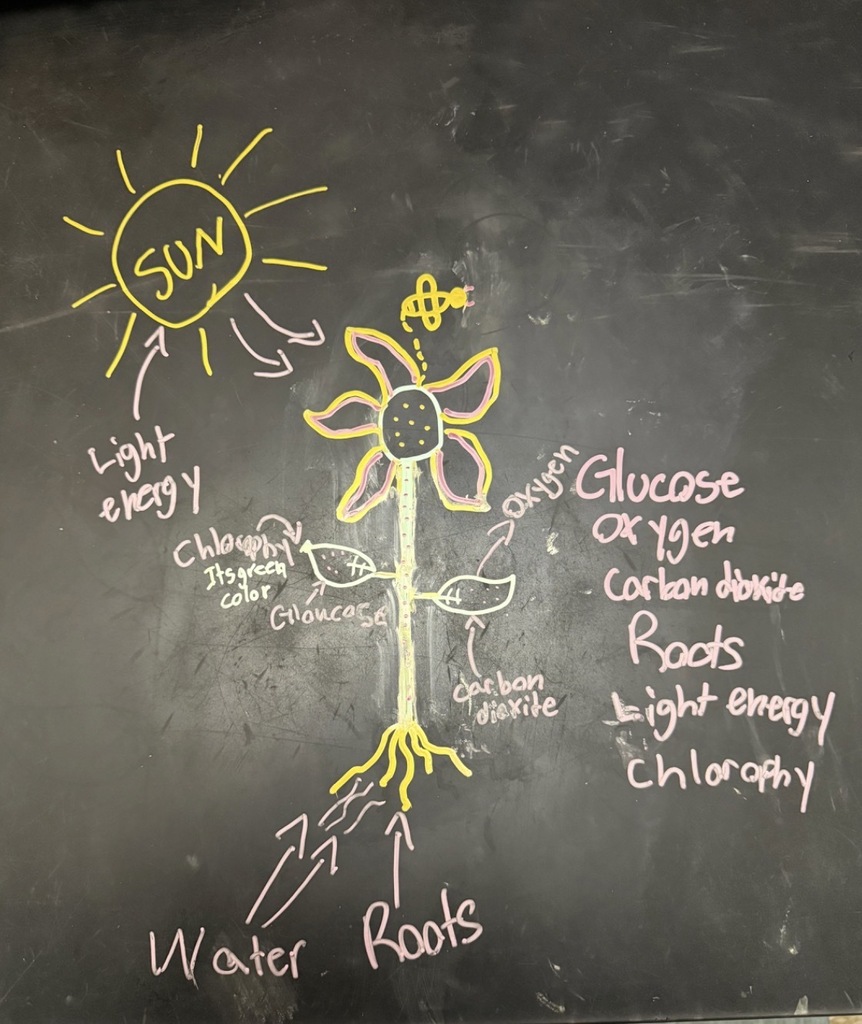 SUN
Light
energy
Chlorophy
Its green
color
Gloucose
Oxygen
Carbon
dioxite
Water
Roots
Glucose
Oxygen
Carbon dioxite
Roots
Light energy
Chlorophy